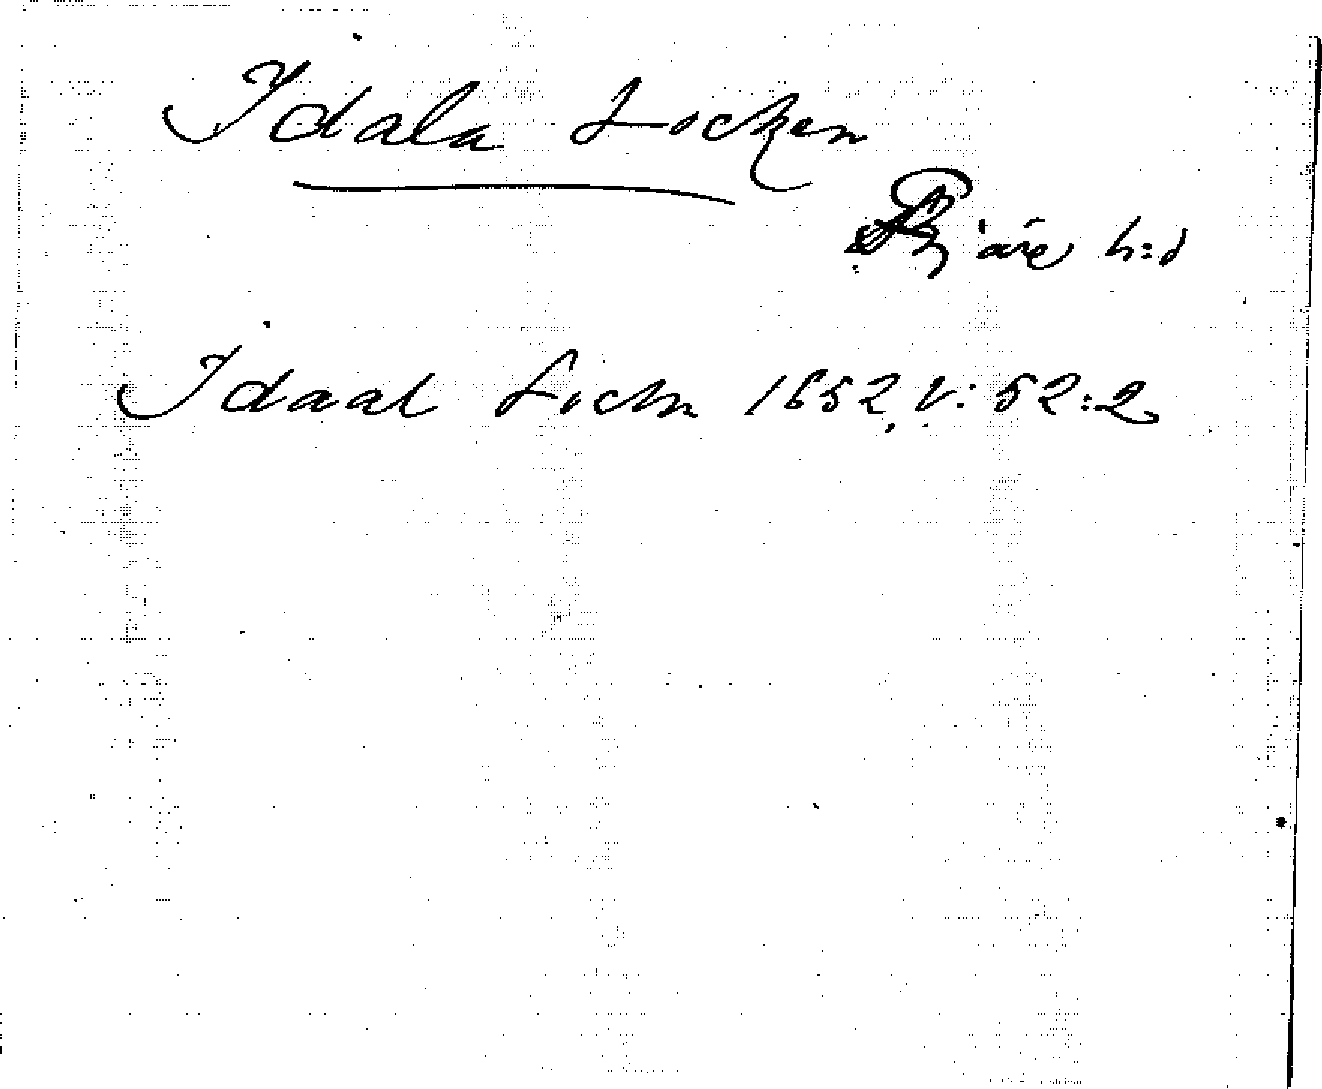 Idala Socken
Fjäre h:d
Idaal Sochn 1652, V: 52:2